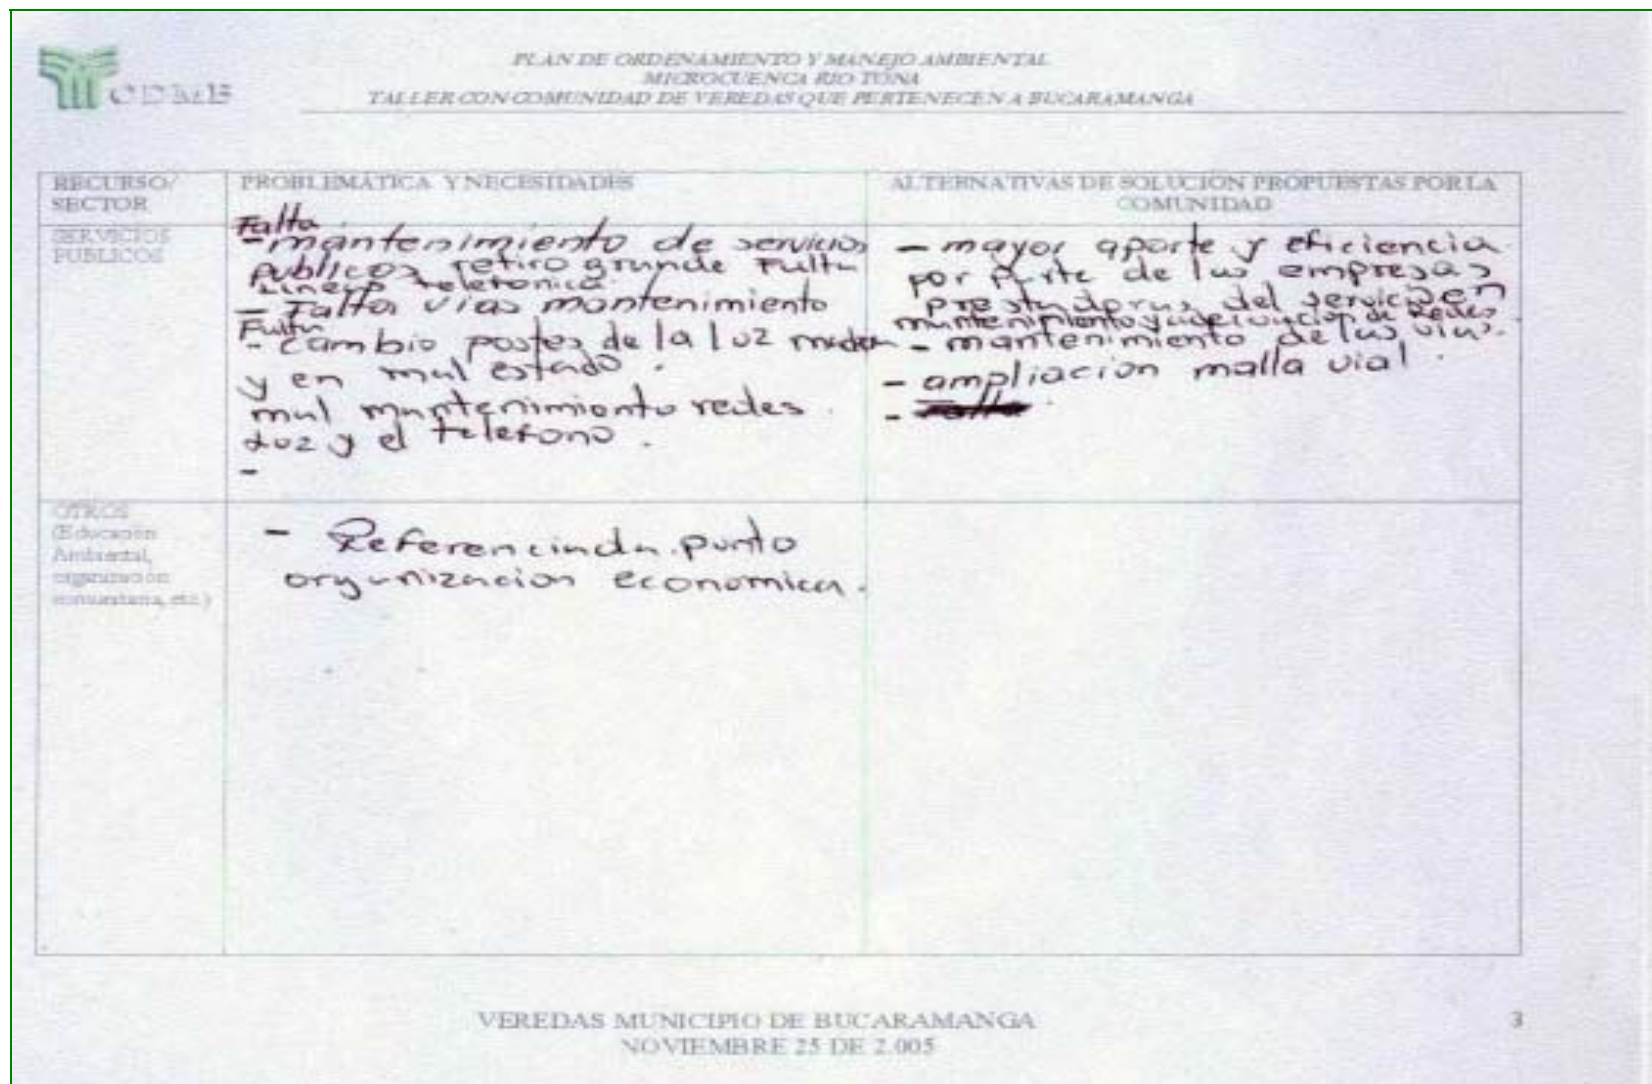 CDMB
PLAN DE ORDENAMIENTO Y MANEJO AMBIENTAL
MICROCUENCA RIO TONA
TALLER CON COMUNIDAD DE VEREDAS QUE PERTENECEN A BUCARAMANGA
RECURSO/
SECTOR
PROBLEMÁTICA Y NECESIDADES
ALTERNATIVAS DE SOLUCION PROPUESTAS POR LA
COMUNIDAD
SERVICIOS
PUBLICOS
Falta
- mantenimiento de servicios
publicos retiro grande Falta
Linea telefonica
- Falta vias mantenimiento
Falta
- cambio postes de la luz madera
y en mal estado.
mal mantenimiento redes
Luz y el telefono.
-
- mayor aporte y eficiencia
por parte de las empresas
prestadoras del servicio en
mantenimiento y adecuación de Redes
- mantenimiento de las vias.
- ampliacion malla vial.
-
OTROS
(Educación
Ambiental,
organización
comunitaria, etc.)
- Referenciada punto
organizacion economica.
VEREDAS MUNICIPIO DE BUCARAMANGA
NOVIEMBRE 25 DE 2.005
3